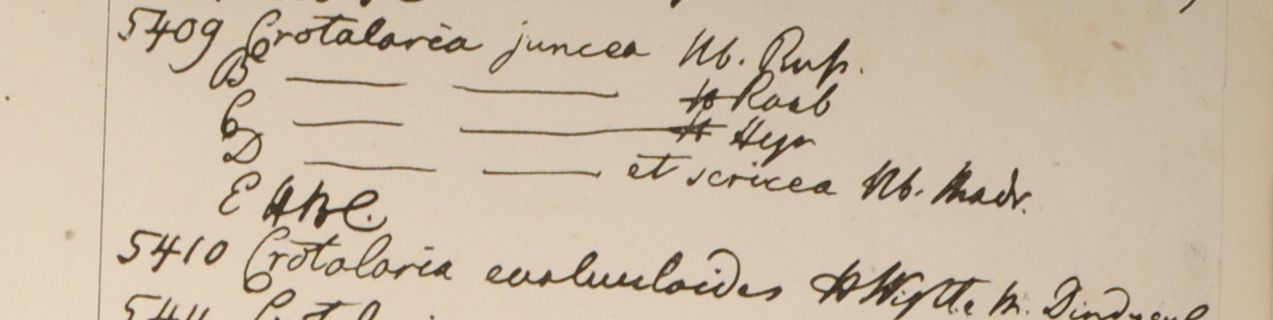 5409 Crotalaria juncea Hb. Russ.
B — — H Roxb
C — — H Heyn
D — — et sericea Hb. Madr.
E HBC.
5410 Crotalaria evolvuloides H Wight. M. Dindygul